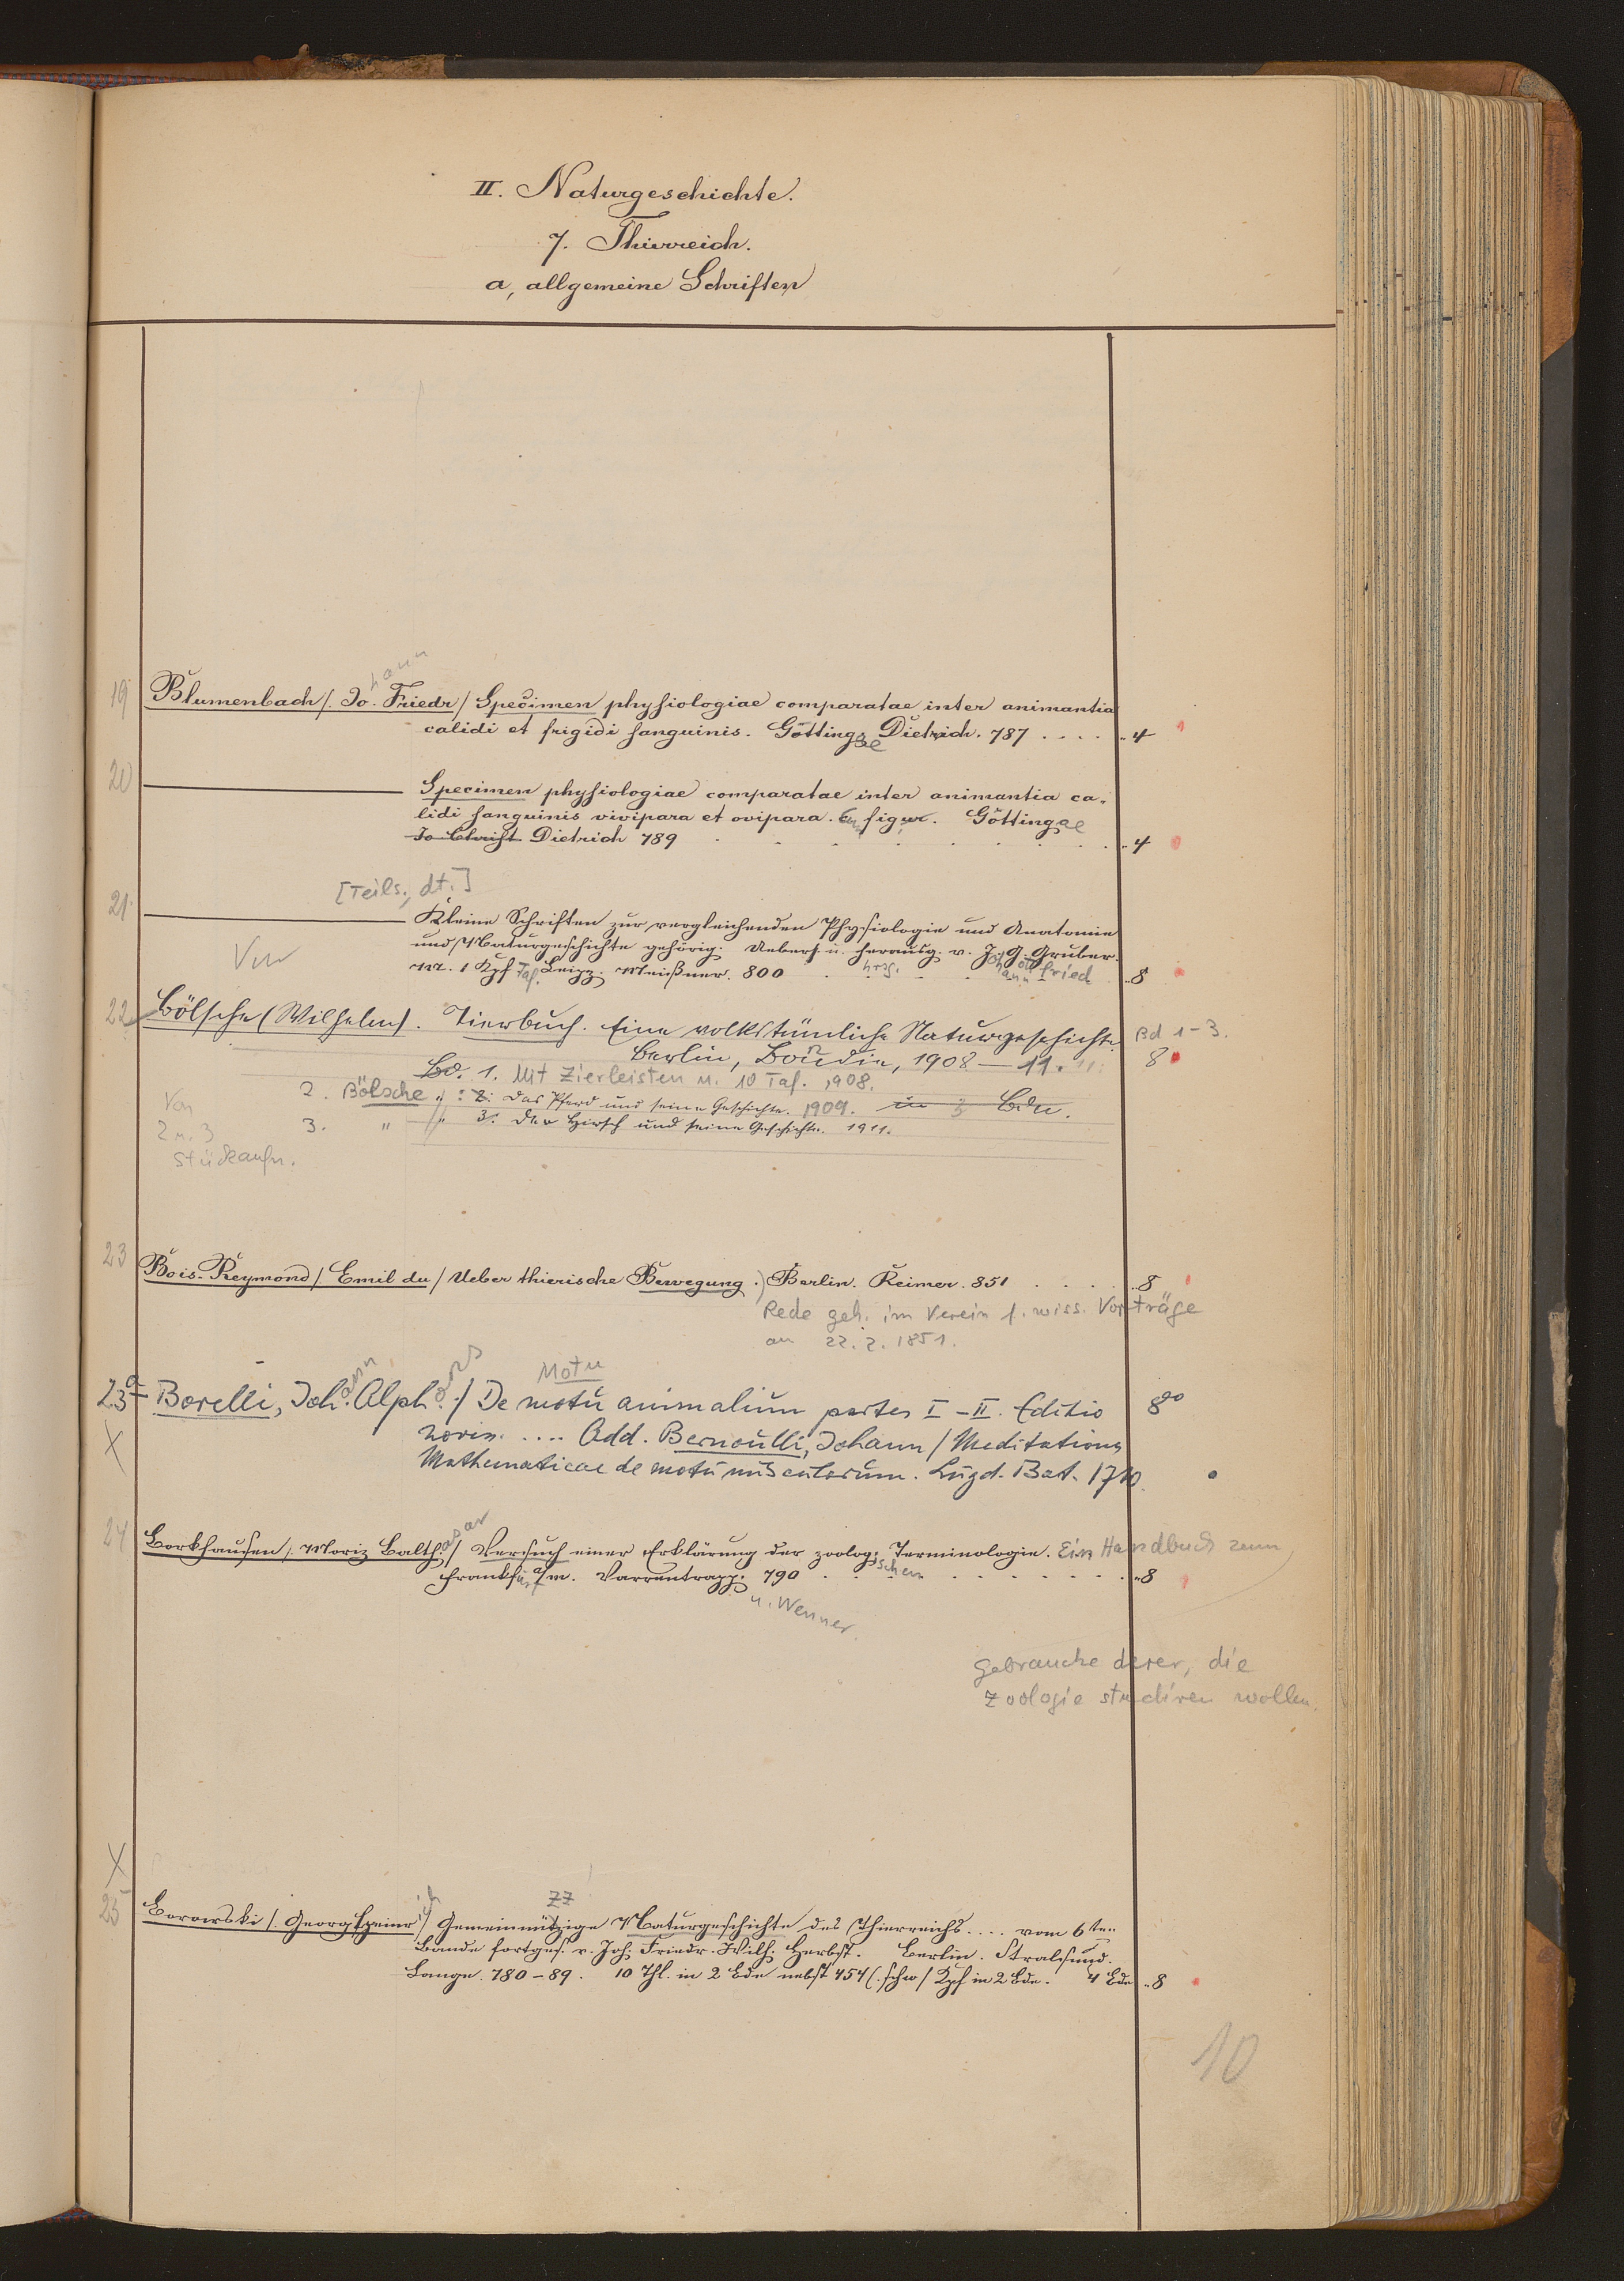 II. Naturgeschichte.
7. Thierreich.
a, allgemeine Schriften
hann
19 Blumenbach /. Jo. Friedr / Specimen physiologiae comparatae inter animantia
calidi et frigidi sanguinis. Göttingae Dietrich. 787 . . . . „ 4
20 Specimen physiologiae comparatae inter animantia ca-
lidi sanguinis vivipara et ovipara. figur. Göttingae
Jo Christ Dietrich 789 „ 4
[Teils., dt.]
21. Kleine Schriften zur vergleichenden Physiologie und Anatomie
und Naturgeschichte gehörig. Uebers. u. herausg. v. J. G. Gruber.
hrsg. hann ottfried
m. 1 Kpf Taf. Leipz. Meißner. 800 „ 8
22 Bölsche (Wilhelm). Tierbuch. Eine volkstümliche Naturgeschichte. Bd 1-3.
Berlin, Bondi, 1908 — 11. 8
Bd. 1. Mit Zierleisten u. 10 Taf. 1908.
2. Bölsche „ : 2: Das Pferd und seine Geschichte. 1909. in 3 Bdn.
3. „ „ 3. Der Hirsch und seine Geschichte. 1911.
Von
2 u. 3
Stückaufn.
23 Bois-Reymond /. Emil du / Ueber thierische Bewegung .) Berlin. Reimer. 851 . . . . „ 8
Rede geh. im Verein f. wiss. Vorträge
am 22. 2. 1851.
ann ons Motu
23a Borelli, Joh. Alph. / De motu animalium partes I-II. Editio 8°
X noviss. .... Add. Bernoulli, Johann / Meditationes
Mathematicae de motu musculorum. Lugd. Bat. 1710.
asar
24 Borkhausen /. Moriz Balth. / Versuch einer Erklärung der zoolog. Terminologie. Ein Handbuch zum
schen
Frankfurt a/m. Varrentrapp. 790 „ 8
u. Wenner.
Gebrauche derer, die
Zoologie studiren wollen.
X
ich zz
25 Borowski /. Georg Heinr / Gemeinnützige Naturgeschichte des Thierreichs .... vom 6ten
Bande fortges. v. Joh. Friedr. Wilh. Herbst. Berlin. Stralsund.
Lange. 780-89. 10 Thl. in 2 Bde nebst 454 (. schw / Kpf in 2 Bde. 4 Bde „ 8
10